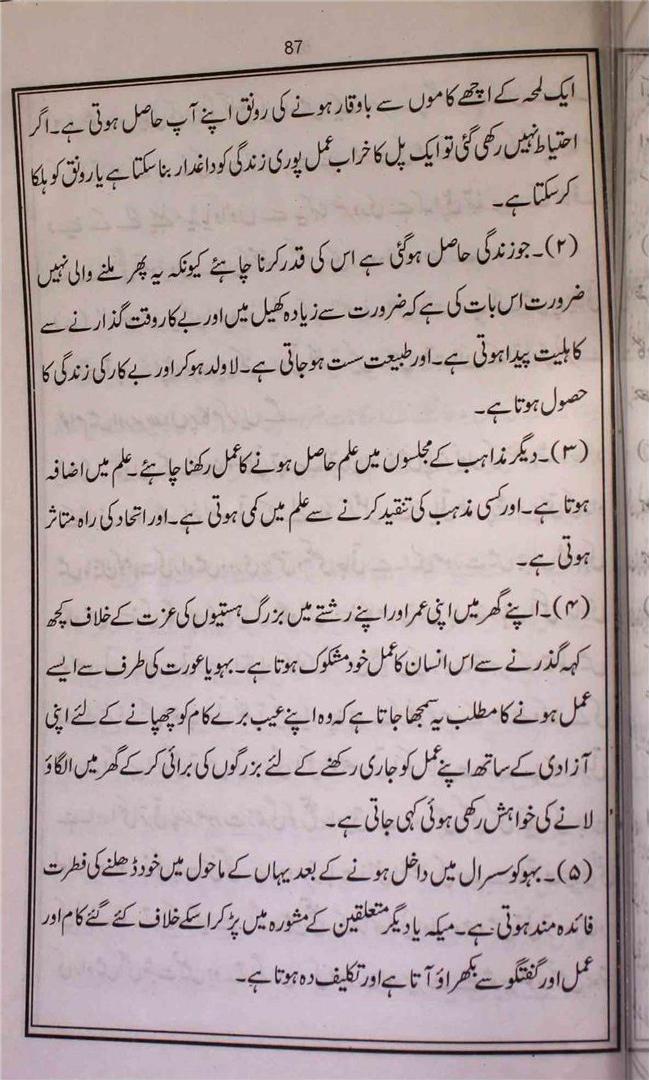 87
ایک لمحہ کے اچھے کاموں سے باوقار ہونے کی رونق اپنے آپ حاصل ہوتی ہے۔ اگر
احتیاط نہیں رکھی گئی تو ایک پل کا خراب عمل پوری زندگی کو داغدار بنا سکتا ہے یا رونق کو ہلکا
کر سکتا ہے۔
(۲)۔ جو زندگی حاصل ہو گئی ہے اس کی قدر کرنا چاہئے کیونکہ یہ پھر ملنے والی نہیں
ضرورت اس بات کی ہے کہ ضرورت سے زیادہ کھیل میں اور بے کار وقت گذارنے سے
کاہلیت پیدا ہوتی ہے۔ اور طبیعت سست ہو جاتی ہے۔ لاولد ہو کر اور بے کار کی زندگی کا
حصول ہوتا ہے۔
(۳)۔ دیگر مذاہب کے مجلسوں میں علم حاصل ہونے کا عمل رکھنا چاہئے۔ علم میں اضافہ
ہوتا ہے۔ اور کسی مذہب کی تنقید کرنے سے علم میں کمی ہوتی ہے۔ اور اتحاد کی راہ متاثر
ہوتی ہے۔
(۴)۔ اپنے گھر میں اپنی عمر اور اپنے رشتے میں بزرگ ہستیوں کی عزت کے خلاف کچھ
کہہ گذرنے سے اس انسان کا عمل خود مشکوک ہوتا ہے۔ بہو یا عورت کی طرف سے ایسے
عمل ہونے کا مطلب یہ سمجھا جاتا ہے کہ وہ اپنے عیب برے کام کو چھپانے کے لئے اپنی
آزادی کے ساتھ اپنے عمل کو جاری رکھنے کے لئے بزرگوں کی برائی کر کے گھر میں الگاؤ
لانے کی خواہش رکھی ہوئی کہی جاتی ہے۔
(۵)۔ بہو کو سسرال میں داخل ہونے کے بعد یہاں کے ماحول میں خود ڈھلنے کی فطرت
فائدہ مند ہوتی ہے۔ میکہ یا دیگر متعلقین کے مشورہ میں پڑ کر اسکے خلاف کئے گئے کام اور
عمل اور گفتگو سے بکھراؤ آتا ہے اور تکلیف دہ ہوتا ہے۔